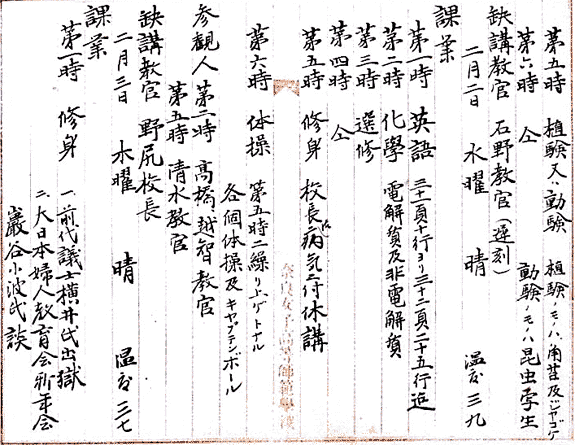 第五時 植験又ハ動験 植験ノモノハ角苔及ビジャゴケ
第六時 仝 動験ノモノハ昆虫学生
缺講教官 石野教官(遅刻)
二月二日 水曜 晴 温度 三九
課業
第一時 英語 三十一頁十行ヨリ三十二頁二十五行迄
第二時 化學 電解質及非電解質
第三時 選修
第四時 仝
第五時 修身 校長病気ニ付休講
第六時 体操 第五時ニ繰リ上ゲトナル
各個体操及キャプテンボール
参観人 第二時 高橋、越智教官
第五時 清水教官
缺講教官 野尻校長
二月三日 木曜 晴 温度 三七
課業
第一時 修身 一、前代議士横井氏出獄
二、大日本婦人教育会新年会
巖谷小波氏談
奈良女子高等師範學校